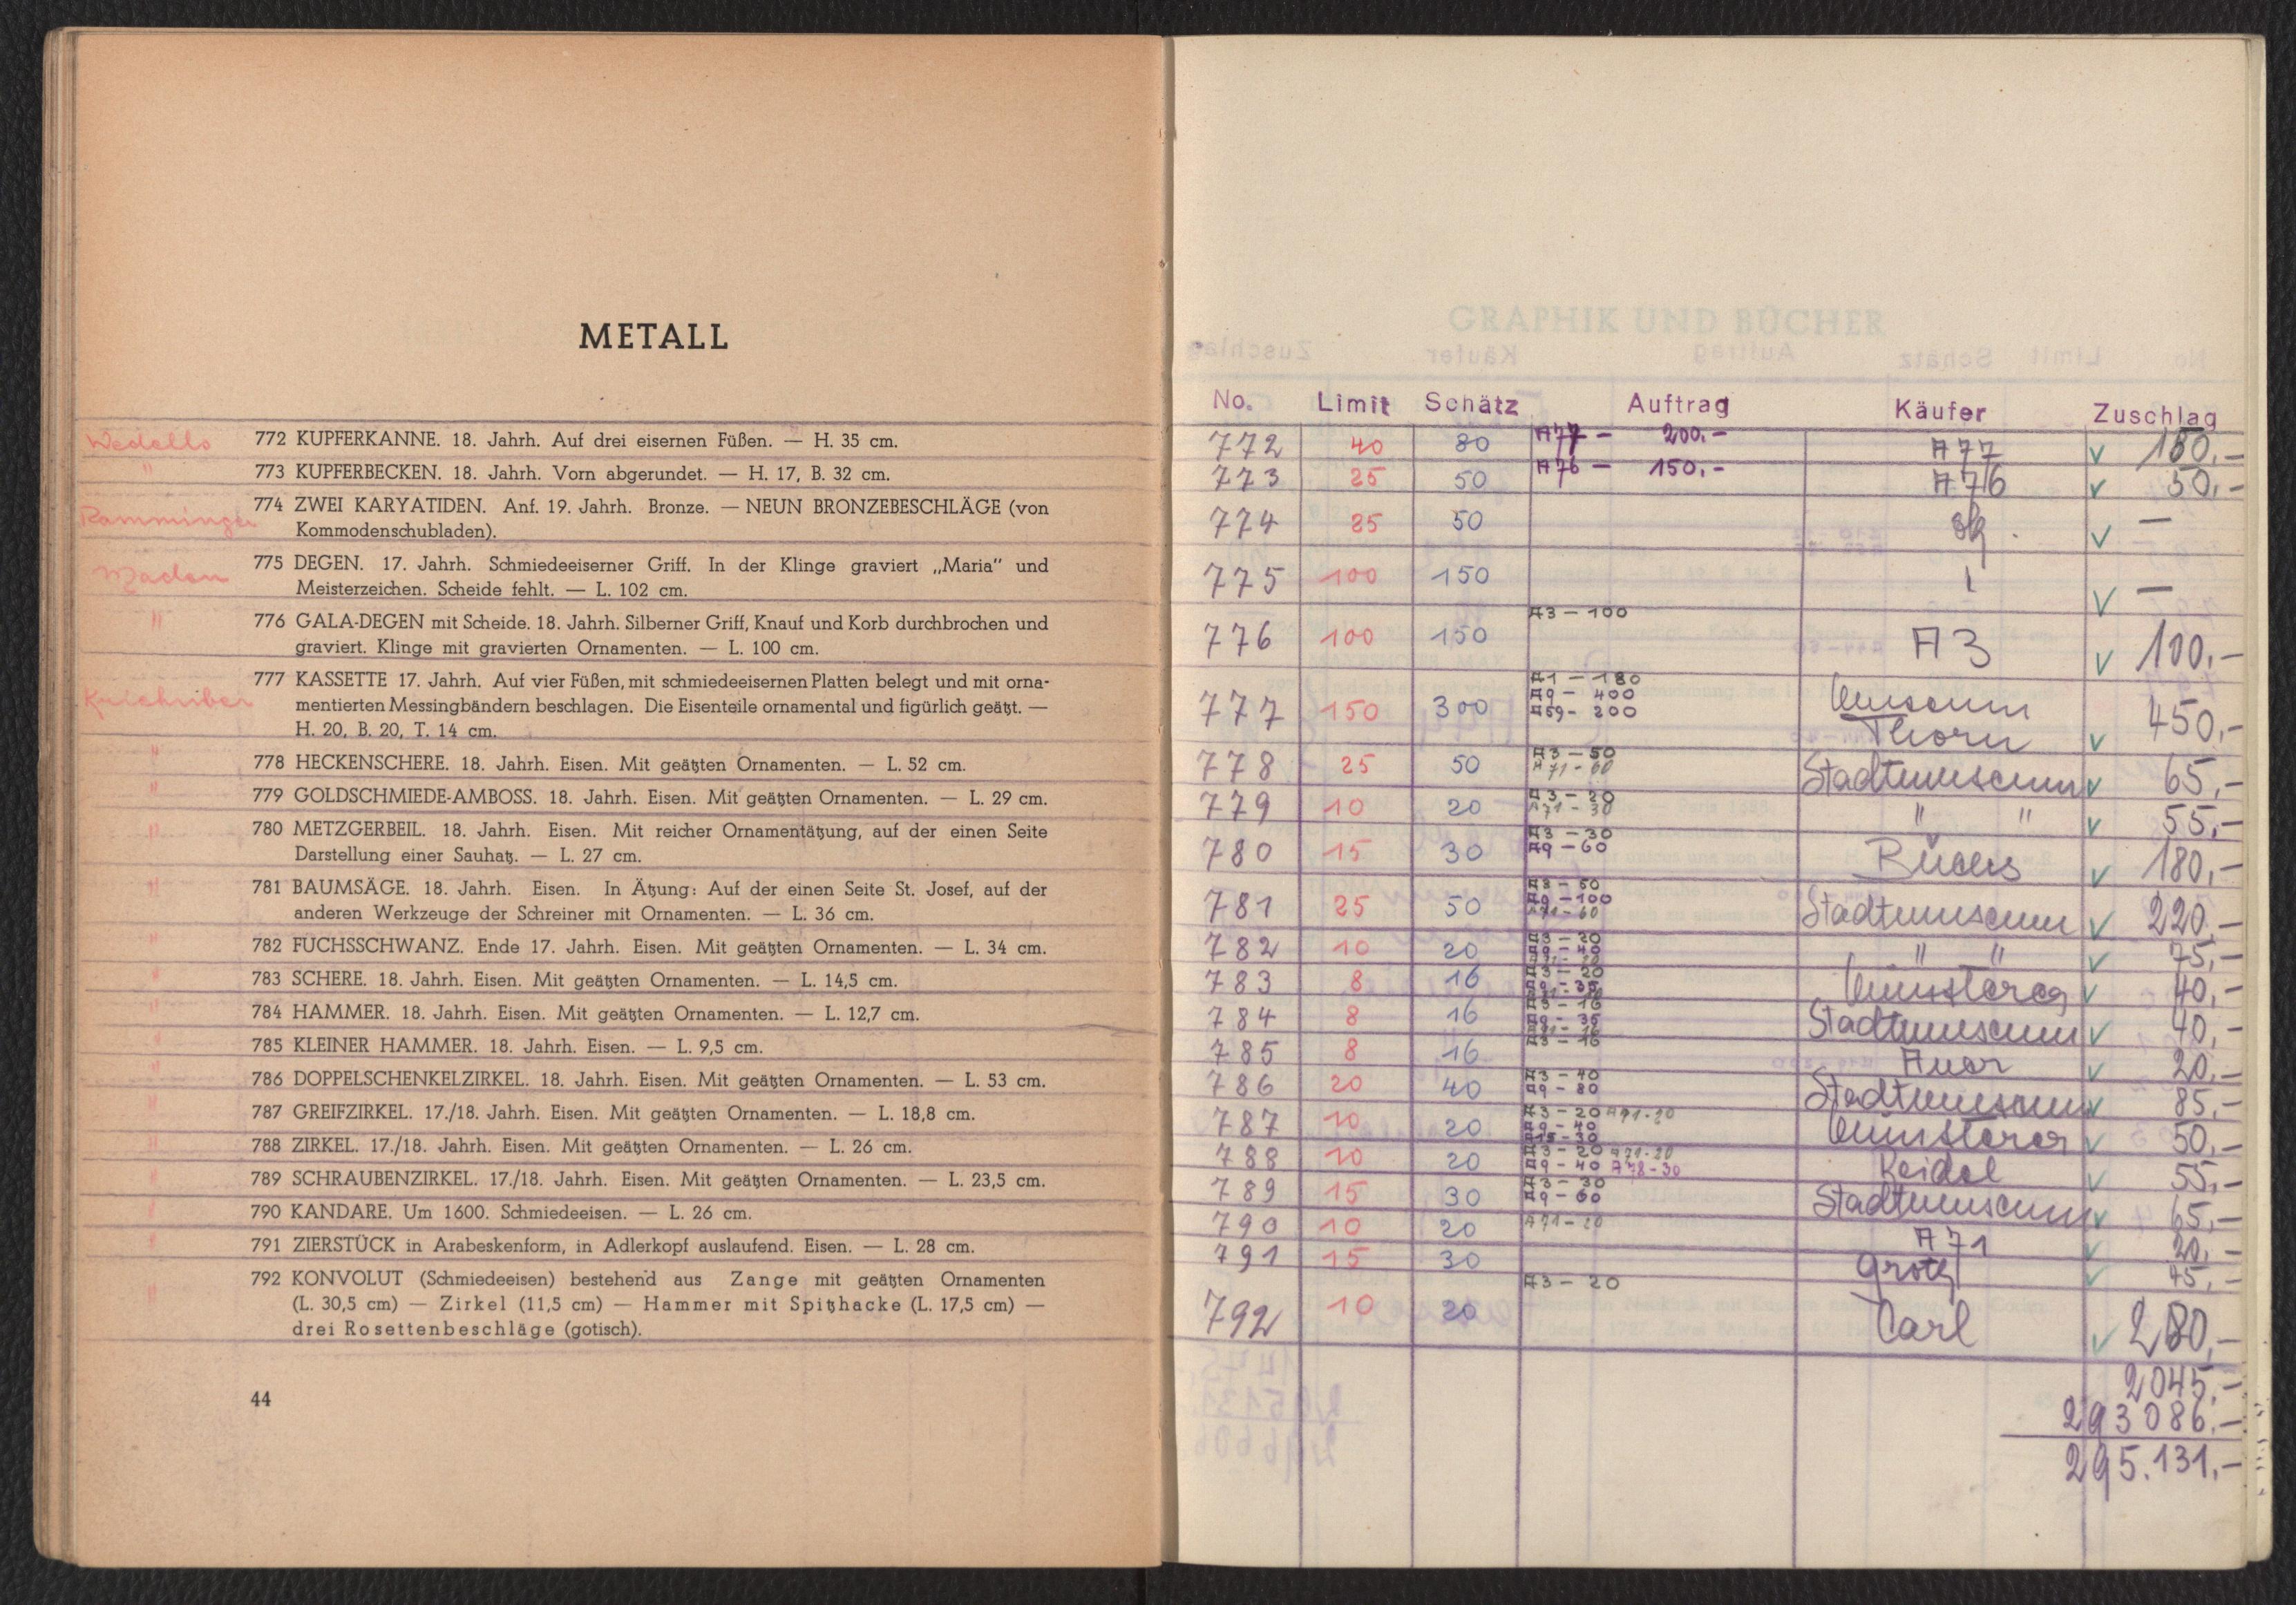 METALL
Wedells 772 KUPFERKANNE. 18. Jahrh. Auf drei eisernen Füßen. — H. 35 cm.
" 773 KUPFERBECKEN. 18. Jahrh. Vorn abgerundet. — H. 17, B. 32 cm.
Ramminger 774 ZWEI KARYATIDEN. Anf. 19. Jahrh. Bronze. — NEUN BRONZEBESCHLÄGE (von
Kommodenschubladen).
775 DEGEN. 17. Jahrh. Schmiedeeiserner Griff. In der Klinge graviert „Maria" und
Meisterzeichen. Scheide fehlt. — L. 102 cm.
" 776 GALA-DEGEN mit Scheide. 18. Jahrh. Silberner Griff, Knauf und Korb durchbrochen und
graviert. Klinge mit gravierten Ornamenten. — L. 100 cm.
777 KASSETTE 17. Jahrh. Auf vier Füßen, mit schmiedeeisernen Platten belegt und mit orna-
mentierten Messingbändern beschlagen. Die Eisenteile ornamental und figürlich geätzt. —
H. 20, B. 20, T. 14 cm.
" 778 HECKENSCHERE. 18. Jahrh. Eisen. Mit geätzten Ornamenten. — L. 52 cm.
" 779 GOLDSCHMIEDE-AMBOSS. 18. Jahrh. Eisen. Mit geätzten Ornamenten. — L. 29 cm.
" 780 METZGERBEIL. 18. Jahrh. Eisen. Mit reicher Ornamentätzung, auf der einen Seite
Darstellung einer Sauhatz. — L. 27 cm.
" 781 BAUMSÄGE. 18. Jahrh. Eisen. In Ätzung: Auf der einen Seite St. Josef, auf der
anderen Werkzeuge der Schreiner mit Ornamenten. — L. 36 cm.
" 782 FUCHSSCHWANZ. Ende 17. Jahrh. Eisen. Mit geätzten Ornamenten. — L. 34 cm.
" 783 SCHERE. 18. Jahrh. Eisen. Mit geätzten Ornamenten. — L. 14,5 cm.
" 784 HAMMER. 18. Jahrh. Eisen. Mit geätzten Ornamenten. — L. 12,7 cm.
" 785 KLEINER HAMMER. 18. Jahrh. Eisen. — L. 9,5 cm.
" 786 DOPPELSCHENKELZIRKEL. 18. Jahrh. Eisen. Mit geätzten Ornamenten. — L. 53 cm.
" 787 GREIFZIRKEL. 17./18. Jahrh. Eisen. Mit geätzten Ornamenten. — L. 18,8 cm.
" 788 ZIRKEL. 17./18. Jahrh. Eisen. Mit geätzten Ornamenten. — L. 26 cm.
" 789 SCHRAUBENZIRKEL. 17./18. Jahrh. Eisen. Mit geätzten Ornamenten. — L. 23,5 cm.
" 790 KANDARE. Um 1600. Schmiedeeisen. — L. 26 cm.
" 791 ZIERSTÜCK in Arabeskenform, in Adlerkopf auslaufend. Eisen. — L. 28 cm.
" 792 KONVOLUT (Schmiedeeisen) bestehend aus Zange mit geätzten Ornamenten
(L. 30,5 cm) — Zirkel (11,5 cm) — Hammer mit Spitzhacke (L. 17,5 cm) —
drei Rosettenbeschläge (gotisch).
44
No. Limit Schätz Auftrag Käufer Zuschlag
772 40 80 A77 — 200.— A77 180,—
773 25 50 A76 — 150.— A76 50,—
774 25 50 —
775 100 150 —
776 100 150 A3 — 100 A3 100,—
777 150 300 A1 — 180 A9 — 400 A59 - 200 Museum Thorn 450,—
778 25 50 A3 — 50 A71 - 60 Stadtmuseum 65,—
779 10 20 A3 — 20 A71 - 30 " " 55,—
780 15 30 A3 — 30 A9 — 60 180,—
781 25 50 A3 — 50 A9 — 100 A71 - 60 Stadtmuseum 220,—
782 10 20 A3 — 20 A9 — 40 " " 75,—
783 8 16 A3 — 20 A9 - 35 Münsterer 40,—
784 8 16 A3 — 16 A9 - 35 A71 - 16 Stadtmuseum 40,—
785 8 16 A3 — 16 Auer 20,—
786 20 40 A3 — 40 A9 — 80 Stadtmuseum 85,—
787 10 20 A3 — 20 A71-20 A9 — 40 A15 - 30 Münsterer 50,—
788 10 20 A3 — 20 A71-20 A9 — 40 A78-30 Keidel 55,—
789 15 30 A3 — 30 A9 — 60 Stadtmuseum 65,—
790 10 20 A71 — 20 A71 20,—
791 15 30 Groth 45,—
792 10 20 A3 — 20 Carl 280,—
2045,—
293086.—
295.131,—